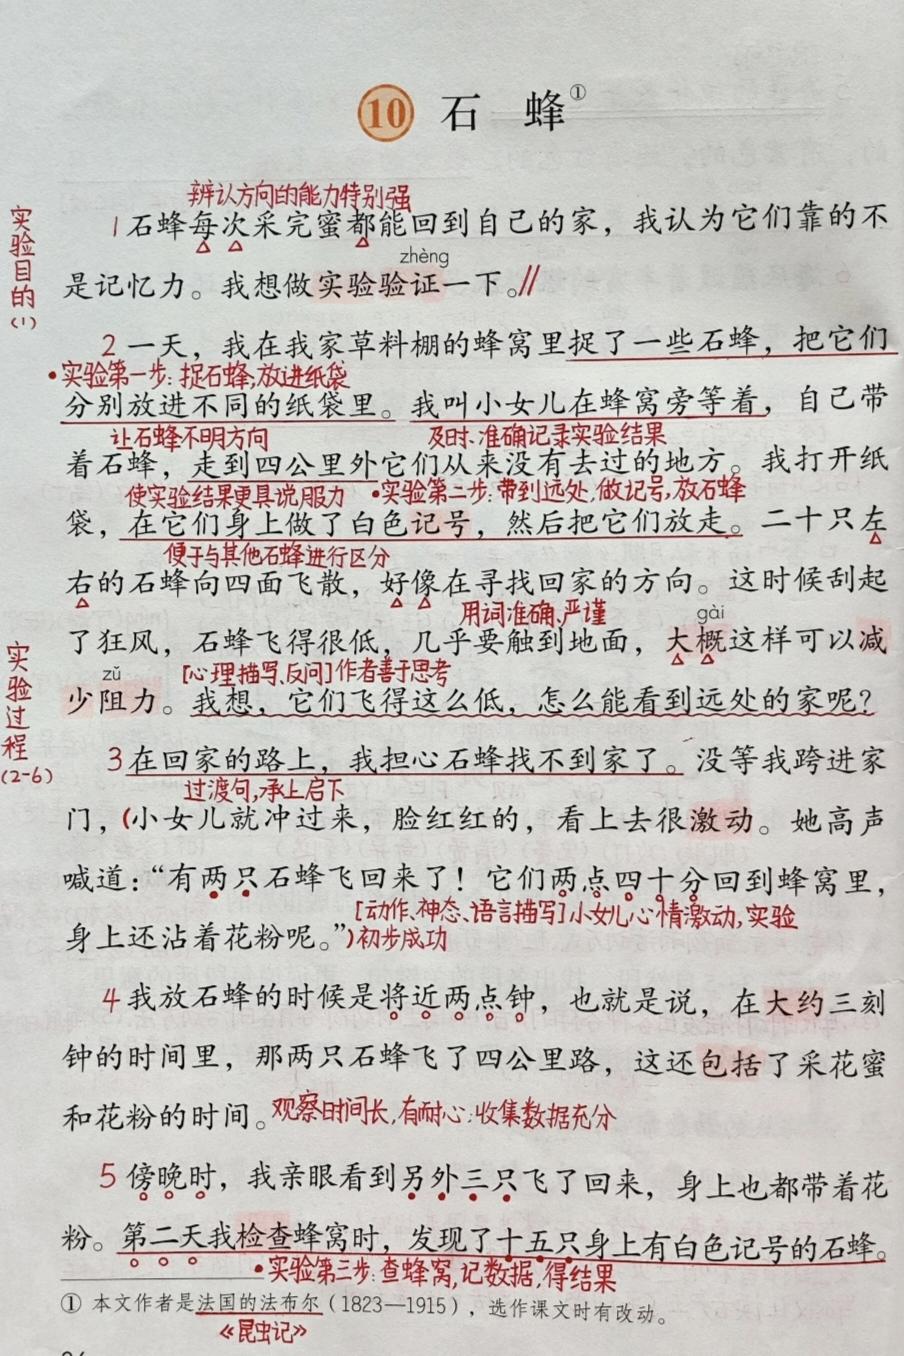 10 石 蜂①
辨认方向的能力特别强
1石蜂每次采完蜜都能回到自己的家，我认为它们靠的不
zhèng
是记忆力。我想做实验验证一下。//
实验目的(1)
2一天，我在我家草料棚的蜂窝里捉了一些石蜂，把它们
•实验第一步:捉石蜂,放进纸袋
分别放进不同的纸袋里。我叫小女儿在蜂窝旁等着，自己带
让石蜂不明方向 及时、准确记录实验结果
着石蜂，走到四公里外它们从来没有去过的地方。我打开纸
使实验结果更具说服力 •实验第二步:带到远处,做记号,放石蜂
袋，在它们身上做了白色记号，然后把它们放走。二十只左
便于与其他石蜂进行区分
右的石蜂向四面飞散，好像在寻找回家的方向。这时候刮起
用词准确、严谨 gài
了狂风，石蜂飞得很低，几乎要触到地面，大概这样可以减
zǔ [心理描写、反问]作者善于思考
少阻力。我想，它们飞得这么低，怎么能看到远处的家呢？
实验过程(2-6)
3在回家的路上，我担心石蜂找不到家了。没等我跨进家
过渡句,承上启下
门，(小女儿就冲过来，脸红红的，看上去很激动。她高声
喊道：“有两只石蜂飞回来了！它们两点四十分回到蜂窝里，
[动作、神态、语言描写]小女儿心情激动,实验
身上还沾着花粉呢。”)初步成功
4我放石蜂的时候是将近两点钟，也就是说，在大约三刻
钟的时间里，那两只石蜂飞了四公里路，这还包括了采花蜜
和花粉的时间。观察时间长,有耐心;收集数据充分
5傍晚时，我亲眼看到另外三只飞了回来，身上也都带着花
粉。第二天我检查蜂窝时，发现了十五只身上有白色记号的石蜂。
•实验第三步:查蜂窝,记数据,得结果
① 本文作者是法国的法布尔（1823—1915），选作课文时有改动。
《昆虫记》